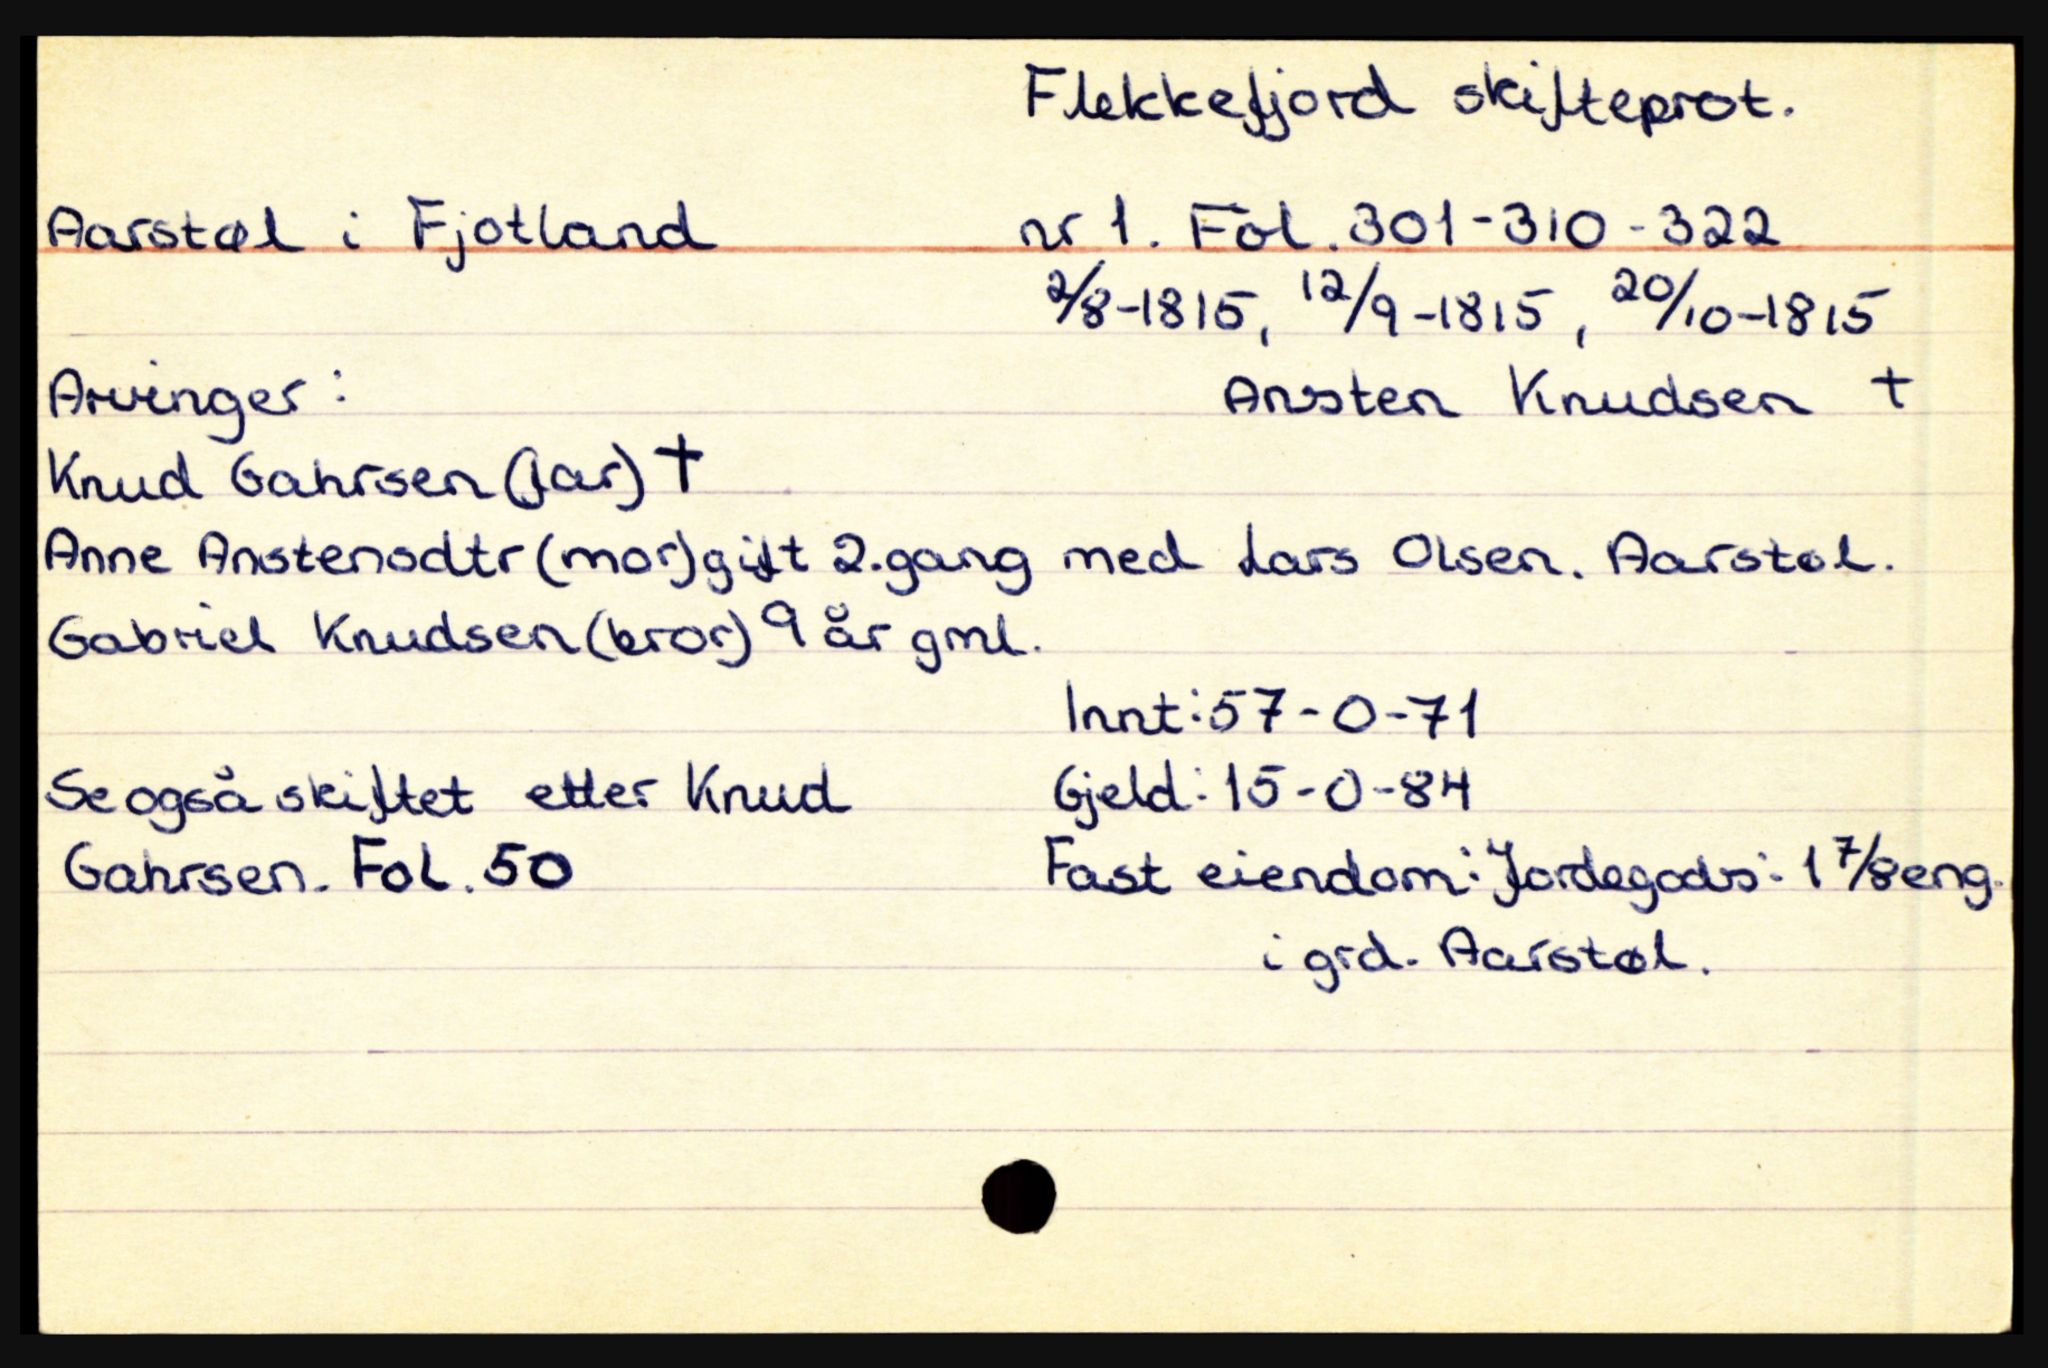 Flekkefjord skifteprot.
Aarstøl i Fjotland nr 1. Fol. 301-310-322
2/8-1815, 12/9-1815, 20/10-1815
Arvinger: Ansten Knudsen †
Knud Gahrsen (far) †
Anne Anstensdtr (mor) gift 2. gang med Lars Olsen. Aarstøl.
Gabriel Knudsen (bror) 9 år gml.
Innt: 57-0-71
Se også skiftet etter Knud Gjeld: 15-0-84
Gahrsen. Fol. 50 Fast eiendom: Jordegods: 1 7/8 eng.
i grd. Aarstøl.